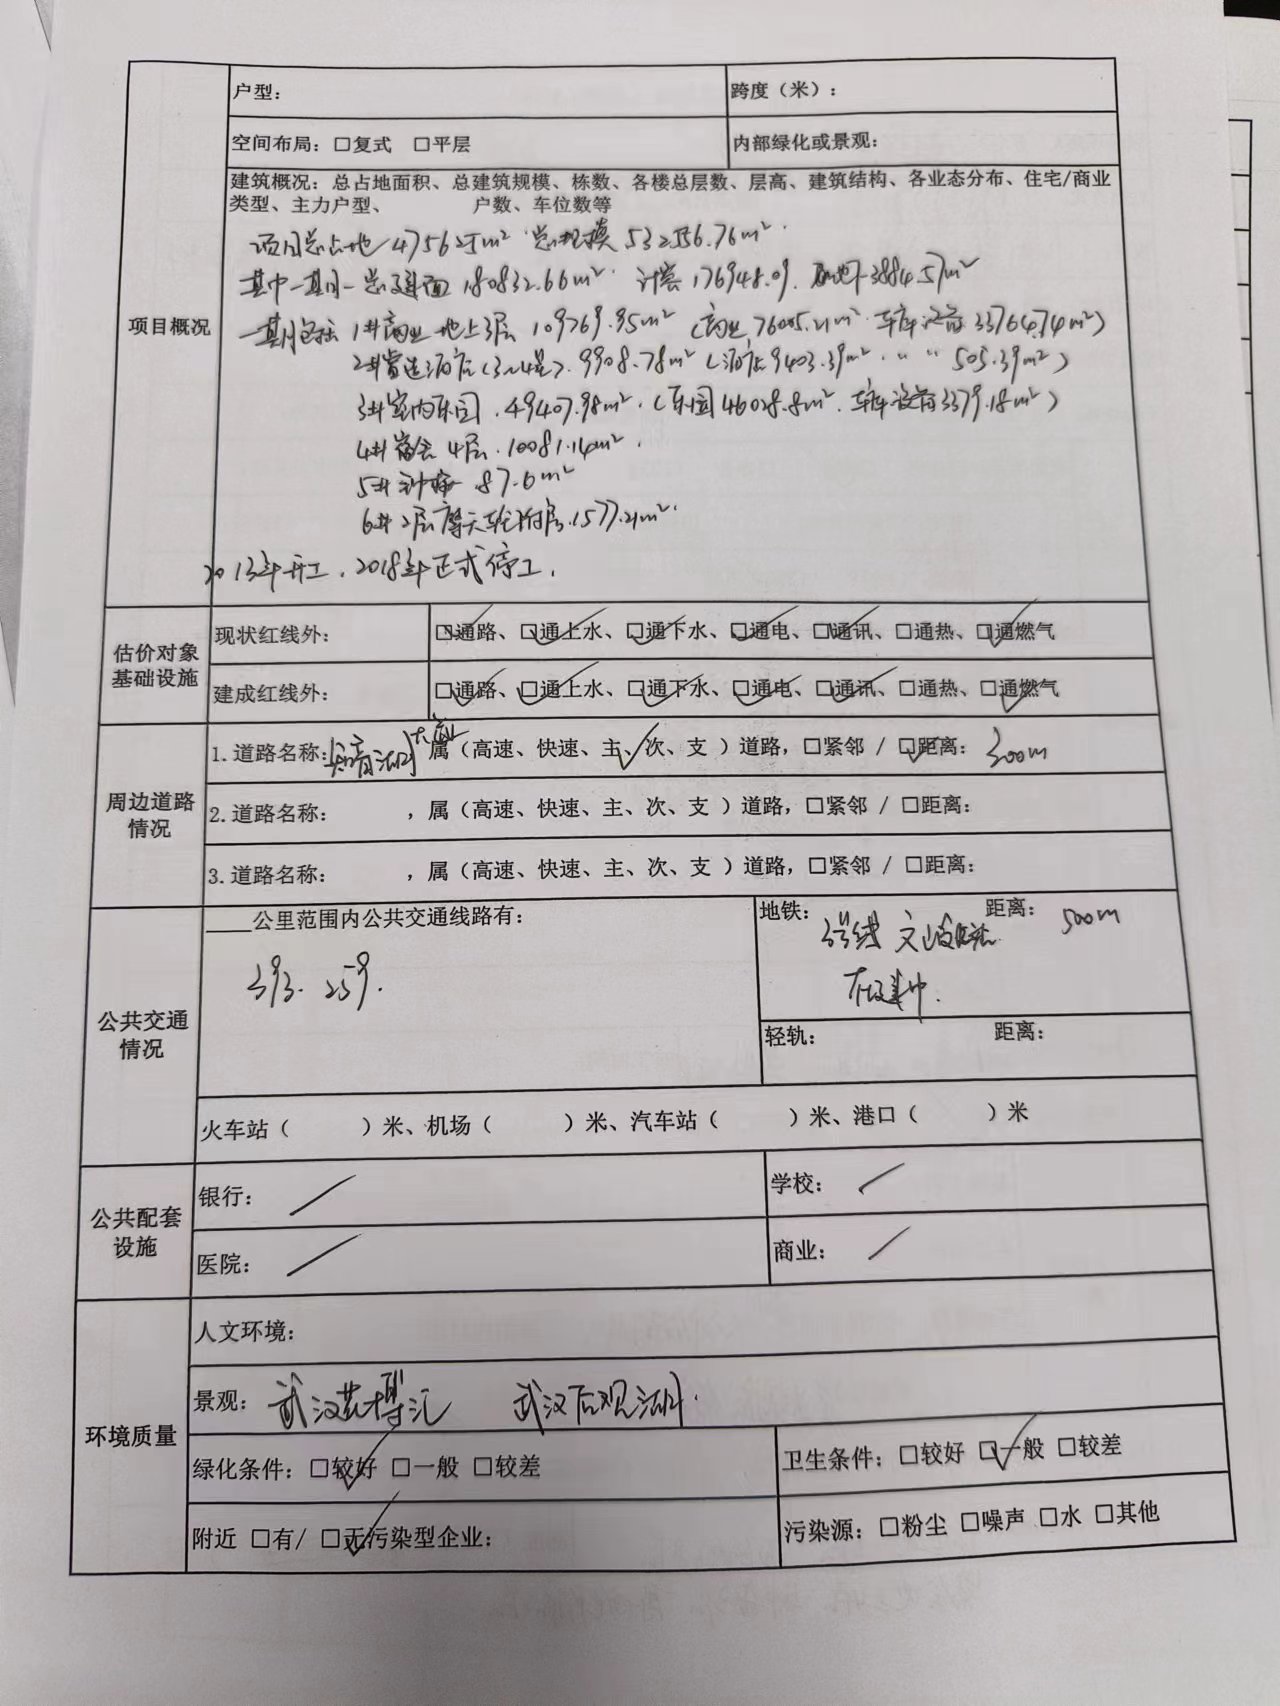 户型： 跨度（米）：
空间布局：□复式 □平层 内部绿化或景观：
建筑概况：总占地面积、总建筑规模、栋数、各楼总层数、层高、建筑结构、各业态分布、住宅/商业
类型、主力户型、 户数、车位数等
项目概况
项目总占地 m² 总规模 m²
其中一期一总建面 180832.66m² 计容 176948.09. 3884.57m²
一期包括 1#商业 地上3层 109769.95m² (商业 76005.21m² 车库设备 33764.74m²)
2#酒店(3~4星). 9908.78m² (酒店9403.39m². " " 505.39m²)
3#室内乐园. 49407.98m². (乐园46028.8m². 车库设备3379.18m²)
4#宿舍 4层. 10081.14m².
5# 87.6m²
6# 2层摩天轮附房. 1577.21m².
2013年开工. 2018年正式停工.
估价对象
基础设施
现状红线外： □通路、□通上水、□通下水、□通电、□通讯、□通热、□通燃气
建成红线外： □通路、□通上水、□通下水、□通电、□通讯、□通热、□通燃气
周边道路
情况
1.道路名称：知音湖大道 属（高速、快速、主、次、支 ）道路，□紧邻 / □距离： 300m
2.道路名称： ，属（高速、快速、主、次、支 ）道路，□紧邻 / □距离：
3.道路名称： ，属（高速、快速、主、次、支 ）道路，□紧邻 / □距离：
公共交通
情况
____公里范围内公共交通线路有：
地铁： 距离： 500m
3号线 文岭站
在建中.
轻轨： 距离：
火车站（ ）米、机场（ ）米、汽车站（ ）米、港口（ ）米
公共配套
设施
银行： / 学校： /
医院： / 商业： /
环境质量
人文环境：
景观： 武汉花博汇 武汉后观湖.
绿化条件：□较好 □一般 □较差 卫生条件：□较好 □一般 □较差
附近 □有/ □无污染型企业： 污染源：□粉尘 □噪声 □水 □其他